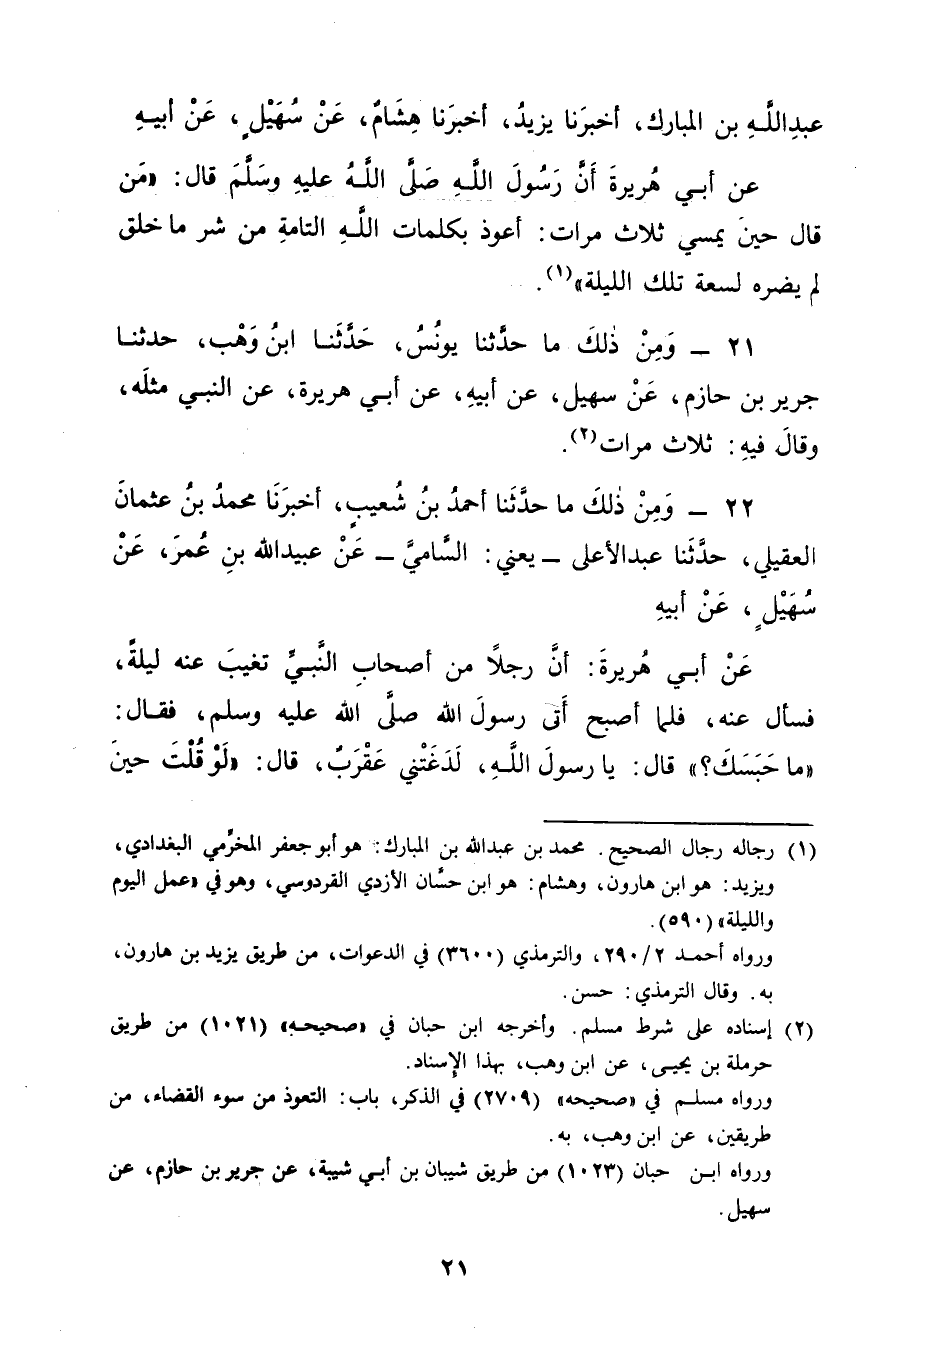 عبدِاللَّهِ بن المبارك، أخبرَنا يزيدُ، أخبرَنا هِشَامٌ، عَنْ سُهَيْلٍ، عَنْ أبيهِ
عن أبي هُريرةَ أَنَّ رَسُولَ اللَّهِ صَلَّى اللَّهُ عليهِ وسَلَّمَ قال: «مَن
قال حينَ يمسي ثلاث مرات: أعوذ بكلمات اللَّهِ التامةِ من شر ما خلق
لم يضره لسعة تلك الليلة»(١).
٢١ ـ وَمِنْ ذٰلكَ ما حدَّثنا يونُسُ، حَدَّثَنا ابنُ وَهْب، حدثنا
جرير بن حازم، عَنْ سهيل، عن أبيهِ، عن أبي هريرة، عن النبي مثلَه،
وقالَ فيهِ: ثلاث مرات(٢).
٢٢ ـ وَمِنْ ذٰلكَ ما حدَّثَنا أحمدُ بنُ شُعيبٍ، أخبرَنَا محمدُ بنُ عثمانَ
العقيلي، حدَّثَنا عبدالأعلى ـ يعني: السَّاميَّ ـ عَنْ عبيدالله بنِ عُمرَ، عَنْ
سُهَيْلٍ، عَنْ أبيهِ
عَنْ أبي هُريرةَ: أنَّ رجلًا من أصحابِ النَّبيِّ تغيبَ عنه ليلةً،
فسأل عنه، فلما أصبح أَتى رسولَ الله صلَّى الله عليه وسلم، فقال:
«ما حَبَسَكَ؟» قال: يا رسولَ اللَّهِ، لَدَغَتْني عَقْرَبٌ، قال: «لَوْ قُلْتَ حينَ
(١) رجاله رجال الصحيح. محمد بن عبدالله بن المبارك: هو أبو جعفر المخرَّمي البغدادي،
ويزيد: هو ابن هارون، وهشام: هو ابن حسَّان الأزدي القردوسي، وهو في «عمل اليوم
والليلة» (٥٩٠).
ورواه أحمد ٢٩٠/٢، والترمذي (٣٦٠٠) في الدعوات، من طريق يزيد بن هارون،
به. وقال الترمذي: حسن.
(٢) إسناده على شرط مسلم. وأخرجه ابن حبان في «صحيحه» (١٠٢١) من طريق
حرملة بن يحيى، عن ابن وهب، بهذا الإسناد.
ورواه مسلم في «صحيحه» (٢٧٠٩) في الذكر، باب: التعوذ من سوء القضاء، من
طريقين، عن ابن وهب، به.
ورواه ابن حبان (١٠٢٣) من طريق شيبان بن أبي شيبة، عن جرير بن حازم، عن
سهيل.
٢١